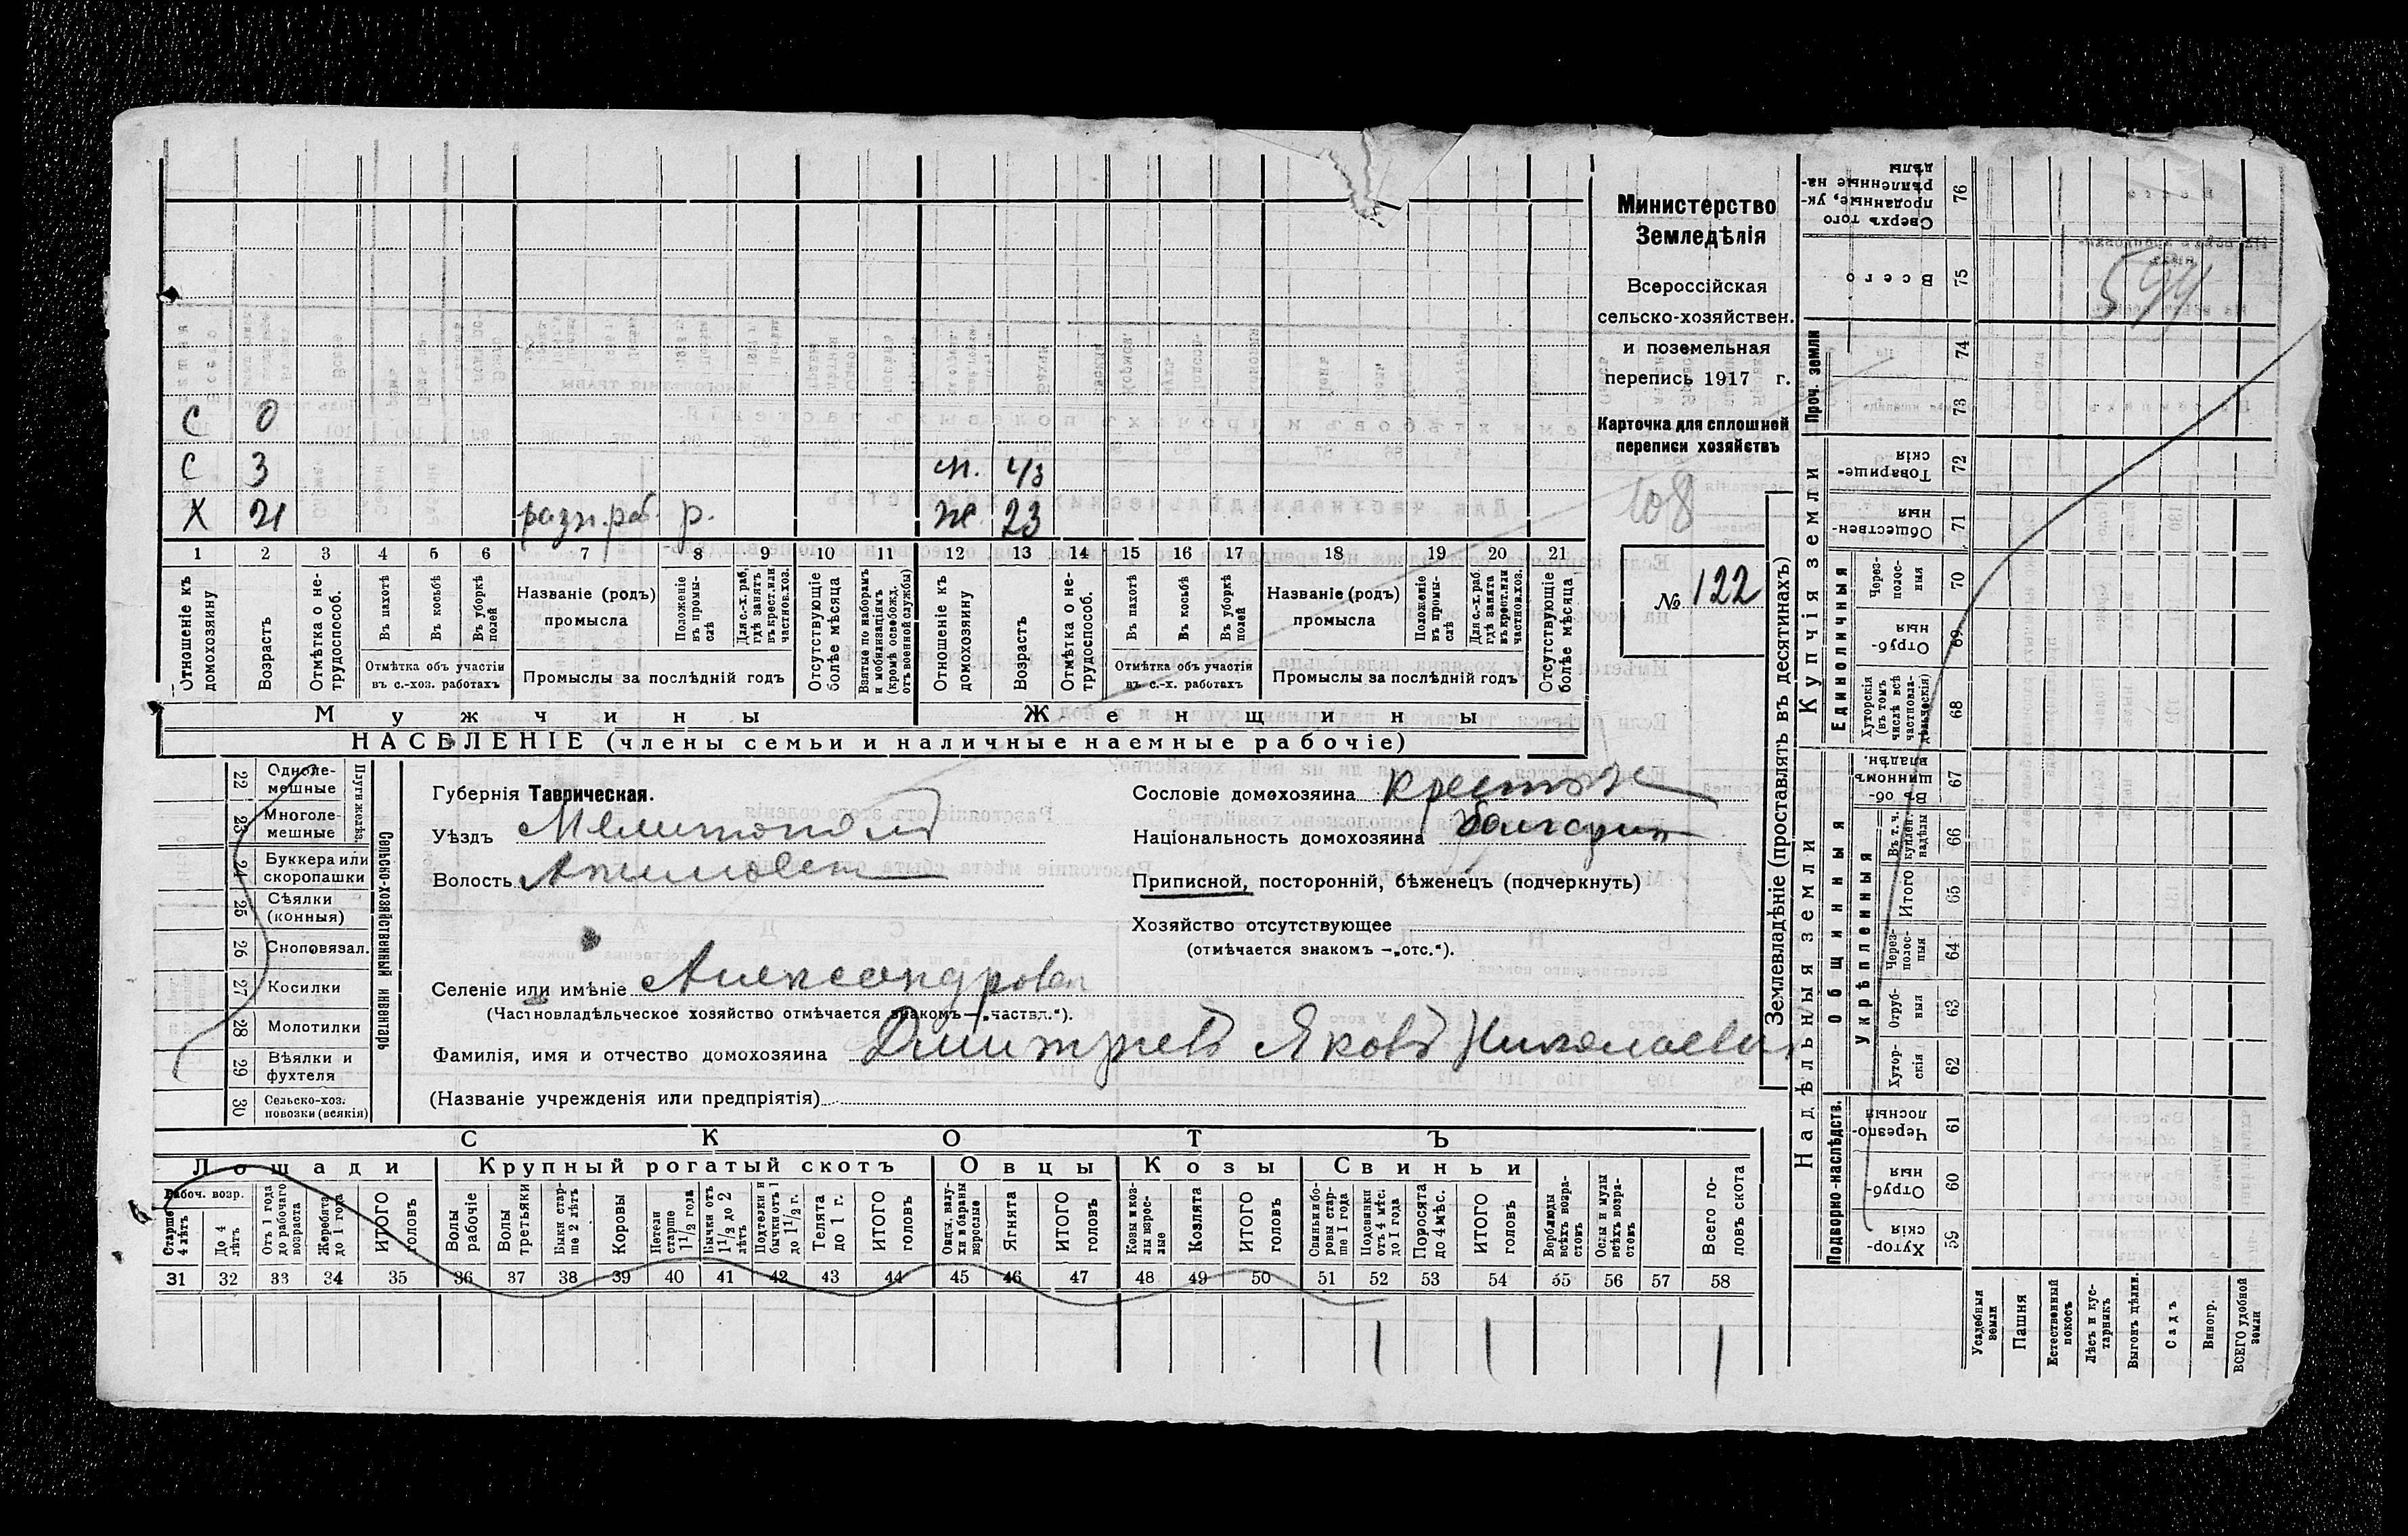 Министерство
Земледѣлія
Всероссійская
сельско-хозяйствен.
и поземельная
перепись 1917 г.
Карточка для сплошной
переписи хозяйствъ
108
№ 122
594
С 0
С 3 м. 43
Х 21 разн. раб. р. ж. 23
1 2 3 4 5 6 7 8 9 10 11 12 13 14 15 16 17 18 19 20 21
Отношеніе къ домохозяину
Возрастъ
Отмѣтка о нетрудоспособ.
Въ пахотѣ
Въ косьбѣ
Въ уборкѣ полей
Отмѣтка объ участіи въ с.-хоз. работахъ
Названіе (родъ) промысла
Положеніе въ промыслѣ
Для с.-х. раб. гдѣ занятъ въ крест. или частнов. хоз.
Промыслы за послѣдній годъ
Отсутствующіе болѣе мѣсяца
Взятые по наборамъ и мобилизаціямъ (кромѣ освобожд. отъ военной службы)
Отношеніе къ домохозяину
Возрастъ
Отмѣтка о нетрудоспособ.
Въ пахотѣ
Въ косьбѣ
Въ уборкѣ полей
Отмѣтка объ участіи въ с.-х. работахъ
Названіе (родъ) промысла
Положеніе въ промыслѣ
Для с.-х. раб. гдѣ занята въ крест. или частнов. хоз.
Промыслы за послѣдній годъ
Отсутствующіе болѣе мѣсяца
Мужчины Женщины
НАСЕЛЕНІЕ (члены семьи и наличные наемные рабочіе)
Сельско-хозяйственный инвентарь
Плуги желѣз.
22 Одноле-мешные
23 Многоле-мешные
24 Буккера или скоропашки
25 Сѣялки (конныя)
26 Сноповязал.
27 Косилки
28 Молотилки
29 Вѣялки и фухтеля
30 Сельско-хоз. повозки (всякія)
Губернія Таврическая.
Уѣздъ Мелитопол
Волость
Селеніе или имѣніе Александровка
(Частновладѣльческое хозяйство отмѣчается знакомъ—„частвл.“).
Фамилія, имя и отчество домохозяина Дмитріевъ Яковъ Николаевич
(Названіе учрежденія или предпріятія)
Сословіе домохозяина крестьян
Національность домохозяина болгарин
Приписной, посторонній, бѣженецъ (подчеркнуть)
Хозяйство отсутствующее
(отмѣчается знакомъ —„отс.“).
СКОТЪ
Лошади Крупный рогатый скотъ Овцы Козы Свиньи
Рабоч. возр.
Старше 4 лѣтъ
До 4 лѣтъ
Отъ 1 года до рабочаго возраста
Жеребята до 1 года
ИТОГО головъ
Волы рабочіе
Волы третьяки
Быки старше 2 лѣтъ
Коровы
Нетели старше 1½ года
Бычки отъ 1½ до 2 лѣтъ
Подтелки и бычки отъ 1 до 1½ г.
Телята до 1 г.
ИТОГО головъ
Овцы, валухи и бараны взрослые
Ягнята
ИТОГО головъ
Козы и козлы взрослые
Козлята
ИТОГО головъ
Свиньи боровы старше 1 года
Подсвинки отъ 4 мѣс. до 1 года
Поросята до 4 мѣс.
ИТОГО головъ
Верблюды всѣхъ возрастовъ
Ослы и мулы всѣхъ возрастовъ
Всего головъ скота
31 32 33 34 35 36 37 38 39 40 41 42 43 44 45 46 47 48 49 50 51 52 53 54 55 56 57 58
1 1 1
Землевладѣніе (проставлять въ десятинахъ)
Надѣльныя земли
Купчія земли
Проч. земли
Общинныя
Укрѣпленныя
Подворно-наслѣдств.
Единоличныя
Сверхъ того проданные, укрѣпленные надѣлы 76
Всего 75
74
73
Товарищескія 72
Общественныя 71
Черезполосныя 70
Отрубныя 69
Хуторскія (въ томъ числѣ всѣ частновладѣльческія) 68
Въ общинномъ владѣн. 67
Въ т. ч. куплен. надѣлы 66
Итого 65
Черезполосныя 64
Отрубныя 63
Хуторскія 62
Черезполосныя 61
Отрубныя 60
Хуторскія 59
Усадебныя земли
Пашня
Естественный покосъ
Лѣсъ и кустарникъ
Выгонъ цѣлин.
Садъ
Виногр.
ВСЕГО удобной земли